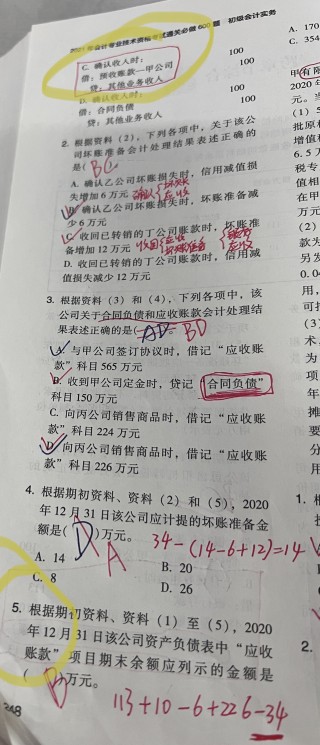 2021年会计专业技术资格考试通关必做600题 初级会计实务
C. 确认收入时:
借:预收账款—甲公司 100
贷:其他业务收入 100
D. 确认收入时:
借:合同负债 100
贷:其他业务收入 100
2. 根据资料(2),下列各项中,关于该公
司坏账准备会计处理结果表述正确的
是( BC
A. 确认乙公司坏账损失时,信用减值损
失增加6万元
B. 确认乙公司坏账损失时,坏账准备减
少6万元
C. 收回已转销的丁公司账款时,坏账准
备增加12万元
D. 收回已转销的丁公司账款时,信用减
值损失减少12万元
3. 根据资料(3)和(4),下列各项中,该
公司关于合同负债和应收账款会计处理结
果表述正确的是( AD )。 BD
A. 与甲公司签订协议时,借记“应收账
款”科目565万元
B. 收到甲公司定金时,贷记“合同负债”
科目150万元
C. 向丙公司销售商品时,借记“应收账
款”科目224万元
D. 向丙公司销售商品时,借记“应收账
款”科目226万元
4. 根据期初资料、资料(2)和(5),2020
年12月31日该公司应计提的坏账准备金
额是( D )万元。 34-(14-6+12)=14
A
A. 14 B. 20
C. 8 D. 26
5. 根据期初资料、资料(1)至(5),2020
年12月31日该公司资产负债表中“应收
账款”项目期末余额应列示的金额是
( B )万元。
113+10-6+226-34
248
A. 170
C. 354